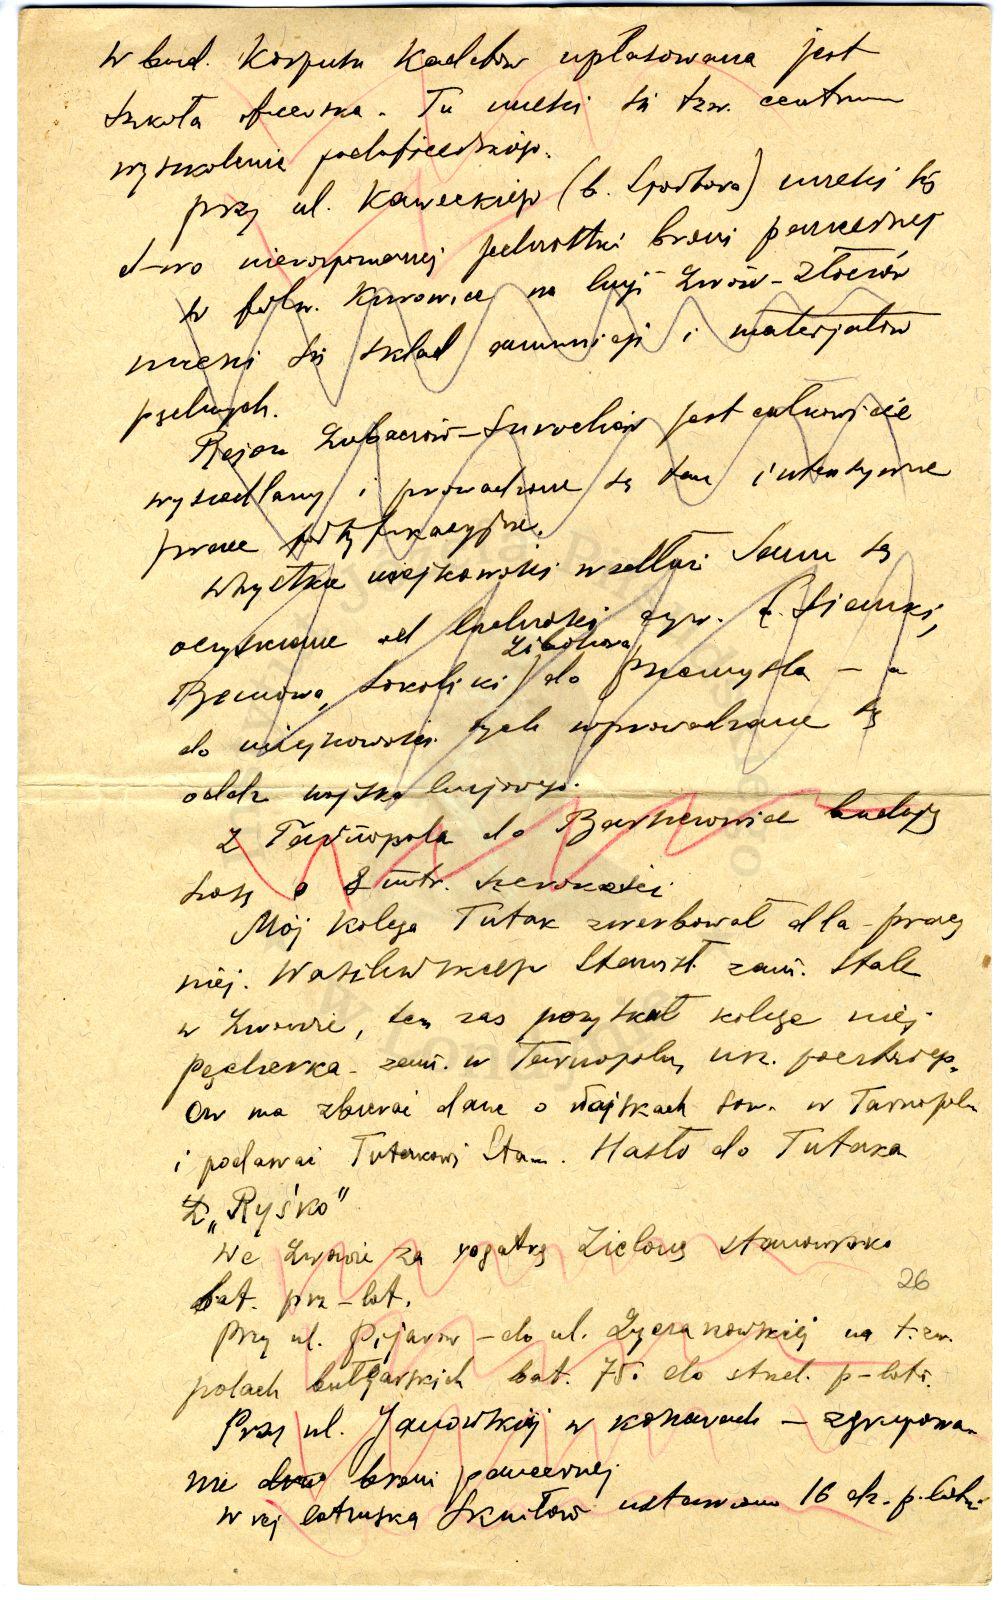 W bud. Korpusu Kadetów uplasowana jest
szkoła oficerska. Tu mieści się tzw. centrum
wyszkolenia podoficerskiego.
przy ul. Kaweckiego (b. ) mieści się
d-wo nierozpoznanej jednostki broni pancernej
w folw. Kurowice na linji Lwów – Złoczów
mieści się skład amunicji i materjałów
pędnych.
Rejon Lubaczów – Surochów jest całkowicie
wysiedlany i prowadzone są tam intensywne
prace fortyfikacyjne.
Wszystkie miejscowości wzdłuż Sanu są
oczyszczane od ludności cyw. t. Sianki,
Libuhora
Beniowa, Sokoliki do Przemyśla – a
do miejscowości tych wprowadzane są
oddz. wojska linjowego.
Z Tarnopola do budują
szosę o 8 mtr. szerokości
Mój kolega Tutak zwerbował dla pracy
niej. Wasilewskiego Stanisł. zam. stale
w Lwowie, ten zaś pozyskał kolegę niej.
Pęcherka – zam. w Tarnopolu,
On ma zbierać dane o wojskach sow. w Tarnopolu
i podawać Tutakowi Stan. Hasło do Tutaka
"Ryśko"
We Lwowie za rogatką Zieloną stanowisko
bat. prz-lot.
26
Przy ul. Pijarów – do ul. Łyczakowskiej na t.zw.
polach bułgarskich bat. 75. do strzel. p-lotn.
Przy ul. Janowskiej w koszarach – zgrupowa-
nie broni pancernej
W rej lotniska Skniłów ustawiono 16 dz. p. lotn.